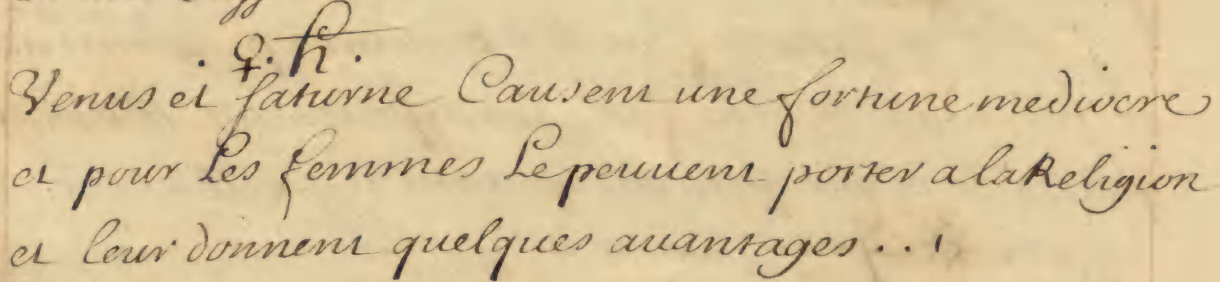 ♀. ♄.
Venus et saturne Causent une fortune mediocre
et pour Les femmes Le peuuent porter a la Religion
et leur donnent quelques auantages...